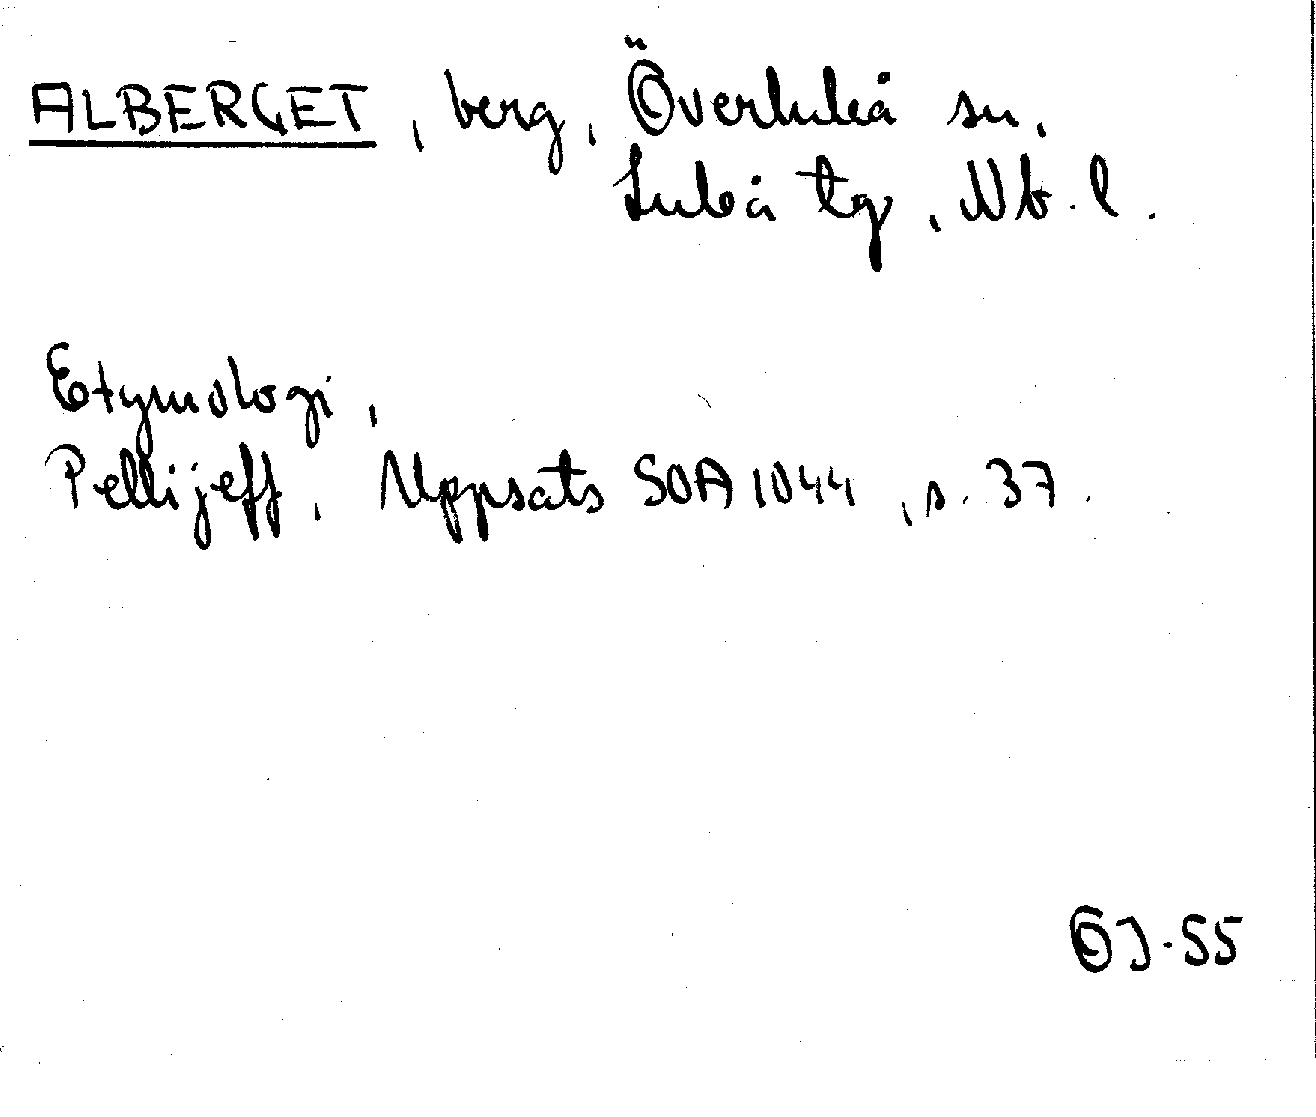 ALBERGET, berg, Överluleå sn.
Luleå tg, Nb. l.
Etymologi,
Pellijeff, Uppsats SOA 1044, s. 37.
OJ-55